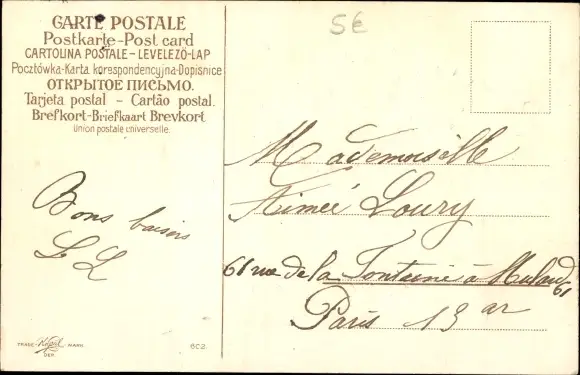 CARTE POSTALE
Postkarte-Post card
CARTOLINA POSTALE-LEVELEZÖ-LAP
Pocztówka-Karta korespondencyjna-Dopisnice
ОТКРЫТОЕ ПИСЬМО.
Tarjeta postal - Cartão postal.
Brefkort-Briefkaart Brevkort
Union postale universelle.
5€
Mademoiselle
Aimée Loury
61 rue de la Fontaine à Mulard
61
Paris 13 ar
Bons baisers
L L
TRADE MARK
DEP
6C2.